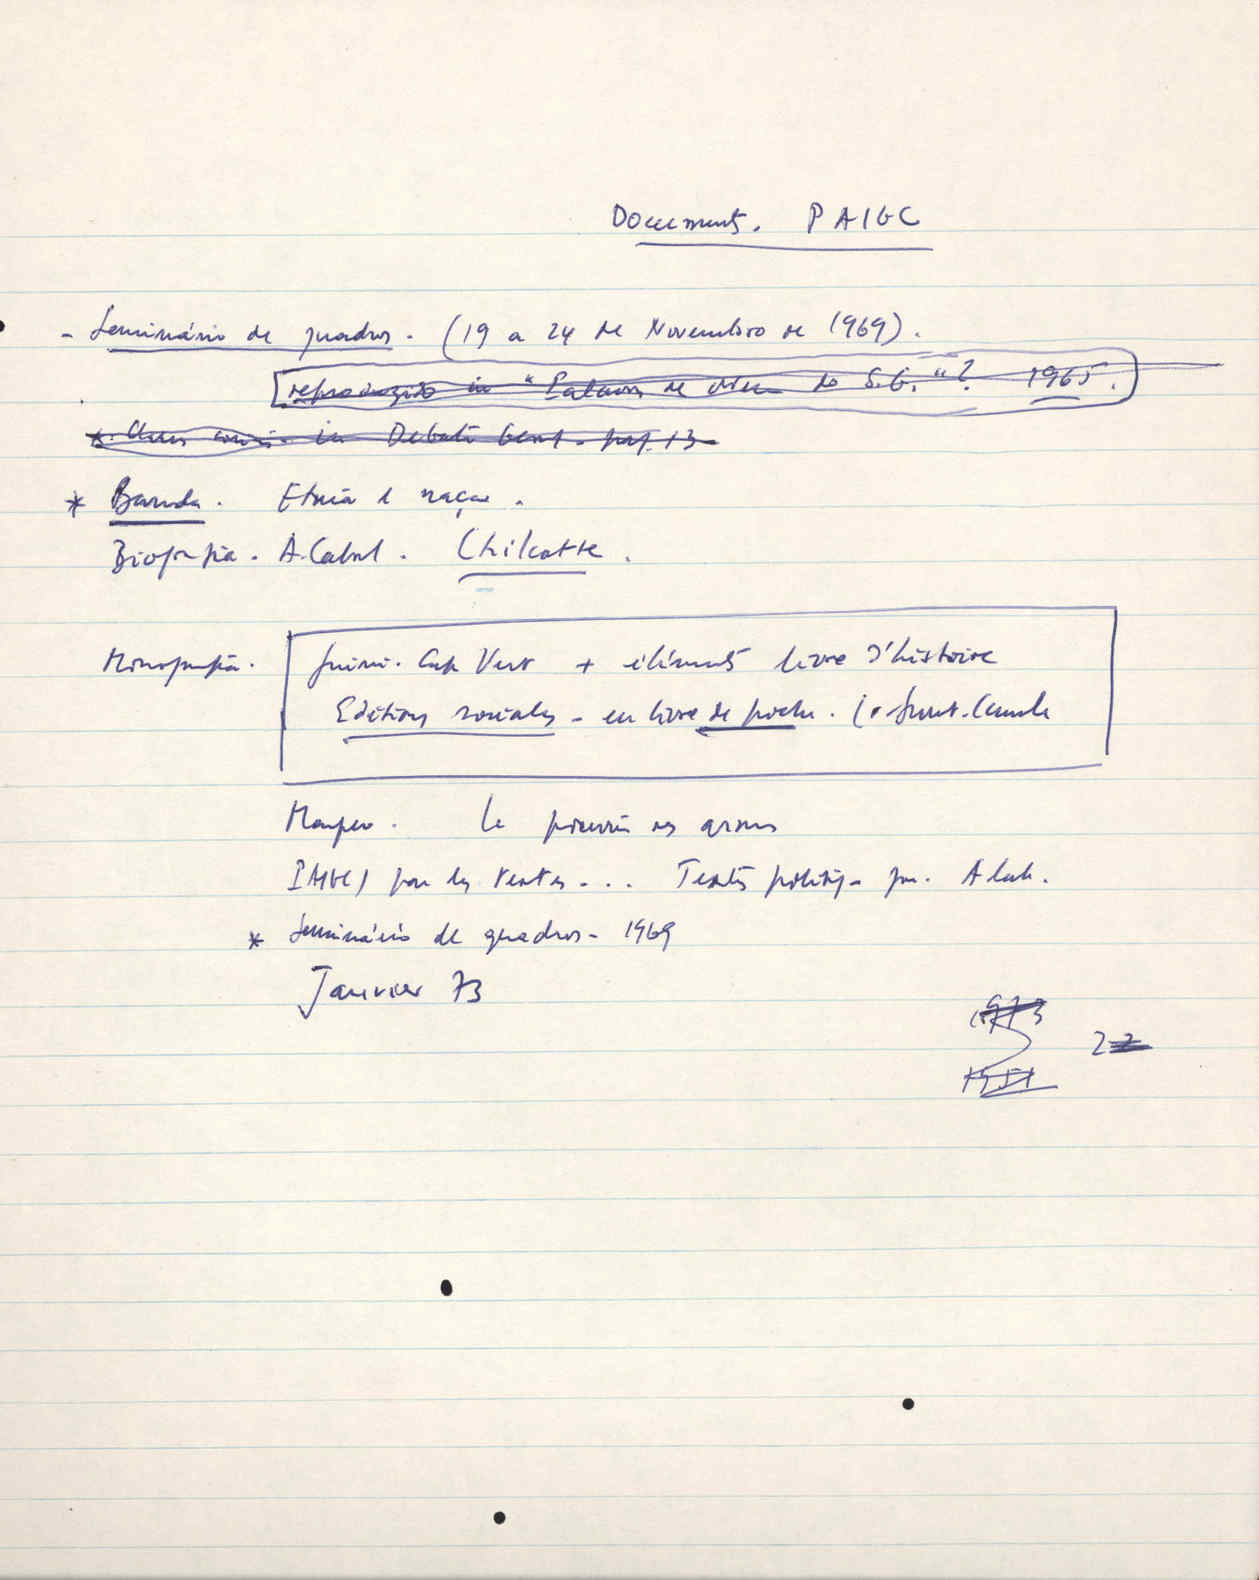 Documents. PAIGC
- Seminário de quadros. (19 a 24 de Novembro de 1969).
reproduzido in "Palavras de do S.G."? 1965.
in Debate Geral - pag. 13
* Banda. Etnia e nação.
Biografia. A. Cabral. Chilcotte.
Monografia. Guiné. Cap Vert + éléments livre d'histoire
Editions sociales - en livre de poche. Suret-Canale
Le pouvoir des armes
PAIGC) par les textes ... Textes politiq. par A. Cab.
* Seminário de quadros - 1969
Janvier 73
1973
1951
22